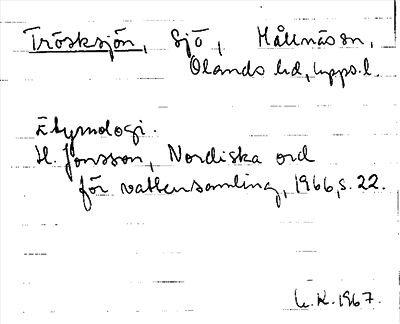 Trösksjön, sjö, Hållnäs sn,
Olands hd, Upps. l.
Etymologi.
H. Jonsson, Nordiska ord
för vattensamling, 1966, s. 22.
L.K. 1967.